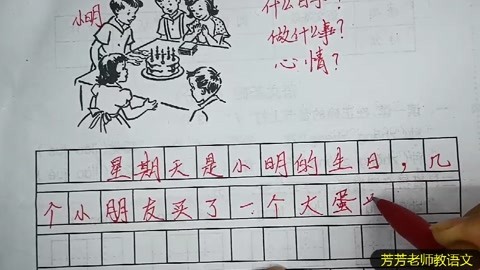 小明
什么日子？
做什么事？
心情？
星期天是小明的生日，几
个小朋友买了一个大蛋
芳芳老师教语文